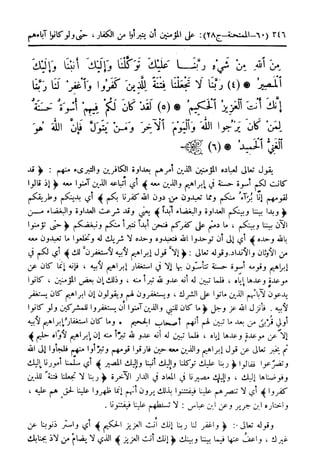 ٣٤٦ (٦٠-الممتحنة-ج٢٨): على المؤمنين أن يتبرأوا من الكفار، حتى ولو كانوا آباءهم
مِنَ اللَّهِ مِنْ شَيْءٍ رَبَّنَا عَلَيْكَ تَوَكَّلْنَا وَإِلَيْكَ أَنَبْنَا وَإِلَيْكَ
الْمَصِيرُ * (٤) رَبَّنَا لَا تَجْعَلْنَا فِتْنَةً لِلَّذِينَ كَفَرُوا وَاغْفِرْ لَنَا رَبَّنَا
إِنَّكَ أَنْتَ الْعَزِيزُ الْحَكِيمُ * (٥) لَقَدْ كَانَ لَكُمْ فِيهِمْ أُسْوَةٌ حَسَنَةٌ
لِمَنْ كَانَ يَرْجُوا اللَّهَ وَالْيَوْمَ الْآخِرَ وَمَنْ يَتَوَلَّ فَإِنَّ اللَّهَ هُوَ
الْغَنِيُّ الْحَمِيدُ * (٦)
يقول تعالى لعباده المؤمنين الذين أمرهم بعداوة الكافرين والتبرىء منهم : ﴿ قد
كانت لكم أسوة حسنة في إبراهيم والذين معه ﴾ أي أتباعه الذين آمنوا معه ﴿ إذ قالوا
لقومهم إنّا بُرَآءُ منكم ومما تعبدون من دون الله كفرنا بكم ﴾ أي بدينكم وطريقكم
﴿ وبدا بيننا وبينكم العداوة والبغضاء أبداً ﴾ يعني وقد شرعت العداوة والبغضاء مـــن
الآن بيننا وبينكم ، ما دمتم على كفركم فنحن أبداً نتبرأ منكم ونبغضكم ﴿ حتى تؤمنوا
بالله وحده ﴾ أي إلى أن توحدوا الله فتعبدوه وحده لا شريك له وتخلعوا ما تعبدون معه
من الأوثان والأنداد.وقوله تعالى : ﴿ إلاّ قول إبراهيم لأبيه لأستغفرن لك ﴾ أي لكم في
إبراهيم وقومه أسوة حسنة تتأسون بها إلا في استغفار إبراهيم لأبيه ، فإنه إنما كان عن
موعدة وعدها إياه ، فلما تبين له أنه عدو لله تبرأ منه ، وذلك أن بعض المؤمنين ، كانوا
يدعون لآبائهم الذين ماتوا على الشرك ، ويستغفرون لهم ويقولون إن ابراهيم كان يستغفر
لأبيه . فأنزل الله عز وجل ﴿ ما كان للنبي والذين آمنوا أن يستغفروا للمشركين ولو كانوا
أولي قربى من بعد ما تبين لهم أنهم أصحاب الجحيم ٠ وما كان استغفار إبراهيم لأبيه
إلاّ عن موعدة وعدها إياه ، فلما تبين له أنه عدو لله تبرأ منه إن إبراهيم لأوّاه حليم ﴾
ثم يخبر تعالى عن قول إبراهيم والذين معه حين فارقوا قومهم وتبرأوا منهم فلجأوا إلى الله
وتضرعوا فقالوا ﴿ ربنا عليك توكلنا وإليك أنبنا وإليك المصير ﴾ أي سلمنا أمورنا إليك
وفوضناها إليك ، وإليك مصيرنا في المعاد في الدار الآخرة ﴿ ربنا لا تجعلنا فتنة للذين
كفروا ﴾ أي لا تنصرهم علينا فيفتتنوا بذلك يرون أنهم إنما ظهروا علينا لحق هم عليه ،
واختاره ابن جرير وعن ابن عباس : لا تسلطهم علينا فيفتنونا.
وقوله تعالى:- ﴿ واغفر لنا ربنا إنك أنت العزيز الحكيم ﴾ أي واستر ذنوبنا عن
غيرك ، واعف عنها فيما بيننا وبينك ﴿ إنك أنت العزيز ﴾ الذي لا يضام من لاذ بجنابك